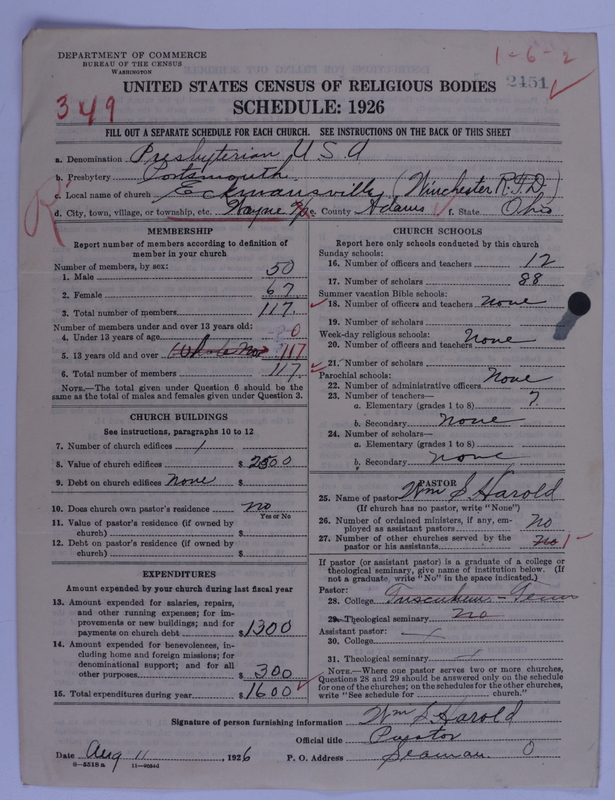 DEPARTMENT OF COMMERCE
BUREAU OF THE CENSUS
WASHINGTON
1-6-2
2151
349
UNITED STATES CENSUS OF RELIGIOUS BODIES
SCHEDULE: 1926
FILL OUT A SEPARATE SCHEDULE FOR EACH CHURCH. SEE INSTRUCTIONS ON THE BACK OF THIS SHEET
a. Denomination Presbyterian U.S.A
b. Presbytery Portsmouth
c. Local name of church Eckmansville (Winchester R.F.D.)
d. City, town, village, or township, etc. Wayne e. County Adams f. State Ohio
MEMBERSHIP
Report number of members according to definition of
member in your church
Number of members, by sex:
1. Male 50
2. Female 67
3. Total number of members 117
Number of members under and over 13 years old:
4. Under 13 years of age 0
5. 13 years old and over (Whole No) 117
6. Total number of members 117
NOTE.—The total given under Question 6 should be
same as the total of males and females given under Question 3.
CHURCH BUILDINGS
See instructions, paragraphs 10 to 12
7. Number of church edifices 1
8. Value of church edifices $2500
9. Debt on church edifices none $
10. Does church own pastor's residence no
Yes or No
11. Value of pastor's residence (if owned by
church) $
12. Debt on pastor's residence (if owned by
church) $
EXPENDITURES
Amount expended by your church during last fiscal year
13. Amount expended for salaries, repairs,
and other running expenses; for im-
provements or new buildings; and for
payments on church debt $1300
14. Amount expended for benevolences, in-
cluding home and foreign missions; for
denominational support; and for all
other purposes $300
15. Total expenditures during year $1600
CHURCH SCHOOLS
Report here only schools conducted by this church
Sunday schools:
16. Number of officers and teachers 12
17. Number of scholars 88
Summer vacation Bible schools:
18. Number of officers and teachers none
19. Number of scholars
Week-day religious schools:
20. Number of officers and teachers none
21. Number of scholars
Parochial schools:
22. Number of administrative officers none
23. Number of teachers—
a. Elementary (grades 1 to 8)
b. Secondary none
24. Number of scholars—
a. Elementary (grades 1 to 8)
b. Secondary none
PASTOR
25. Name of pastor Wm S. Harold
(If church has no pastor, write "None")
26. Number of ordained ministers, if any, em-
ployed as assistant pastors no
27. Number of other churches served by the
pastor or his assistants no 1
If pastor (or assistant pastor) is a graduate of a college or
theological seminary, give name of institution below. (If
not a graduate, write "No" in the space indicated.)
Pastor:
28. College Tusculum - Tenn
29. Theological seminary no
Assistant pastor:
30. College
31. Theological seminary
NOTE.—Where one pastor serves two or more churches,
Questions 28 and 29 should be answered only on the schedule
for one of the churches; on the schedules for the other churches,
write "See schedule for church."
Signature of person furnishing information Wm S. Harold
Official title Pastor
Date Aug 11, 1926 P. O. Address Seaman O
8-5518a